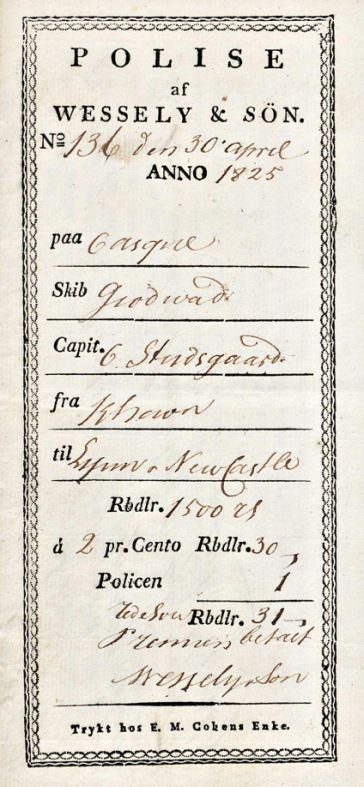 POLISE
af
WESSELY & SÖN.
No 136 den 30 april
ANNO 1825
paa Casque
Skib Grodwad
Capit. C. Studsgaard
fra Khavn
til Lynn & NewCastle
Rbdlr. 1500 rs
á 2 pr. Cento Rbdlr. 30,
Policen 1
Rbdlr. 31,
Præmien betalt
Wessely & Son
Trykt hos E. M. Cohens Enke.